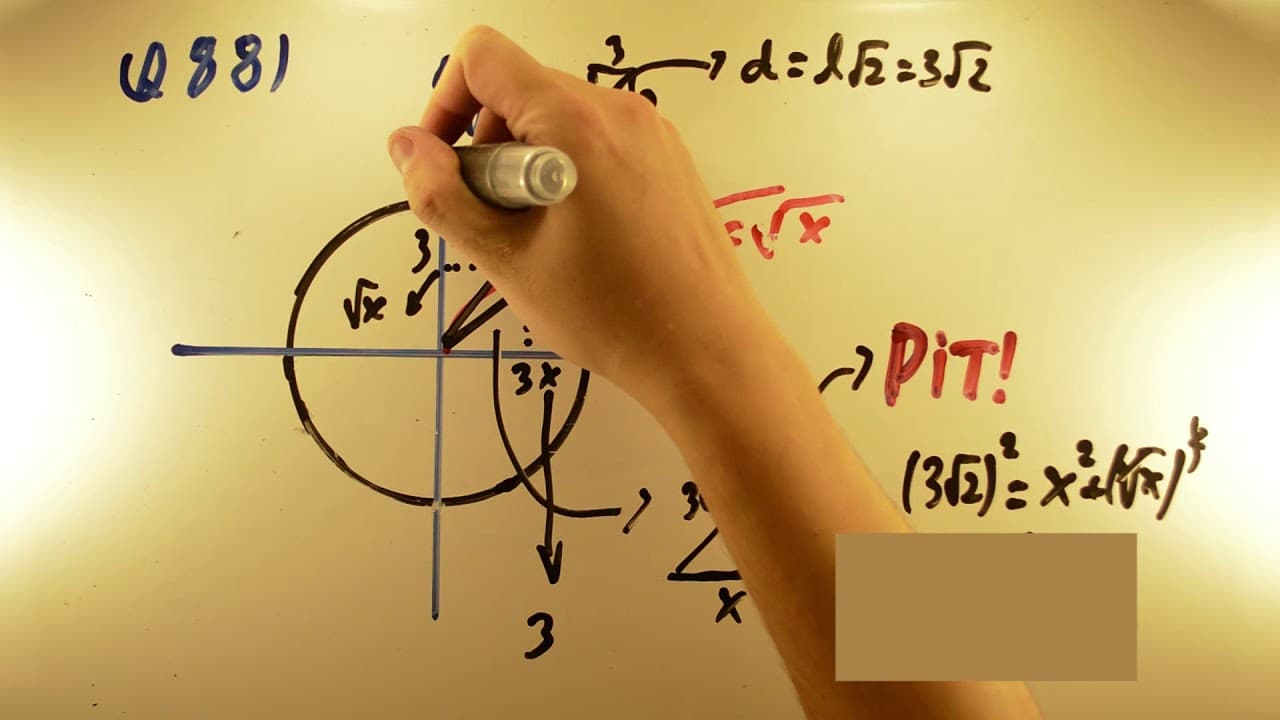 Q881
3
d = l√2 = 3√2
= √x
3
√x
3 x
PiT!
(3√2)² = x² +
3
x
3